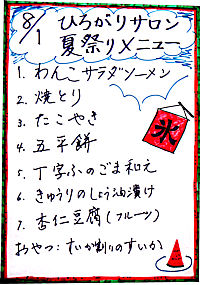 8/1 ひろがりサロン
夏祭りメニュー
1. わんこサラダソーメン
2. 焼とり
3. たこやき
4. 五平餅
5. 丁字ふのごま和え
6. きゅうりのしょう油漬け
7. 杏仁豆腐(フルーツ)
おやつ:すいか割りのすいか
氷